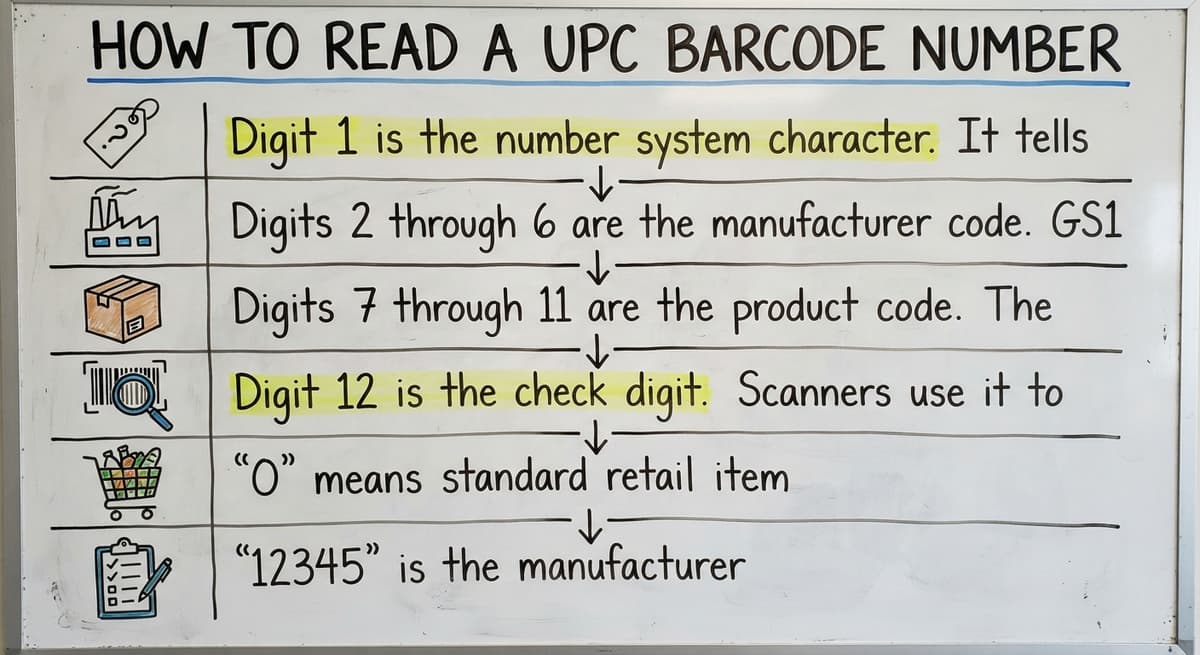 HOW TO READ A UPC BARCODE NUMBER
Digit 1 is the number system character. It tells
Digits 2 through 6 are the manufacturer code. GS1
Digits 7 through 11 are the product code. The
Digit 12 is the check digit. Scanners use it to
“0” means standard retail item
“12345” is the manufacturer